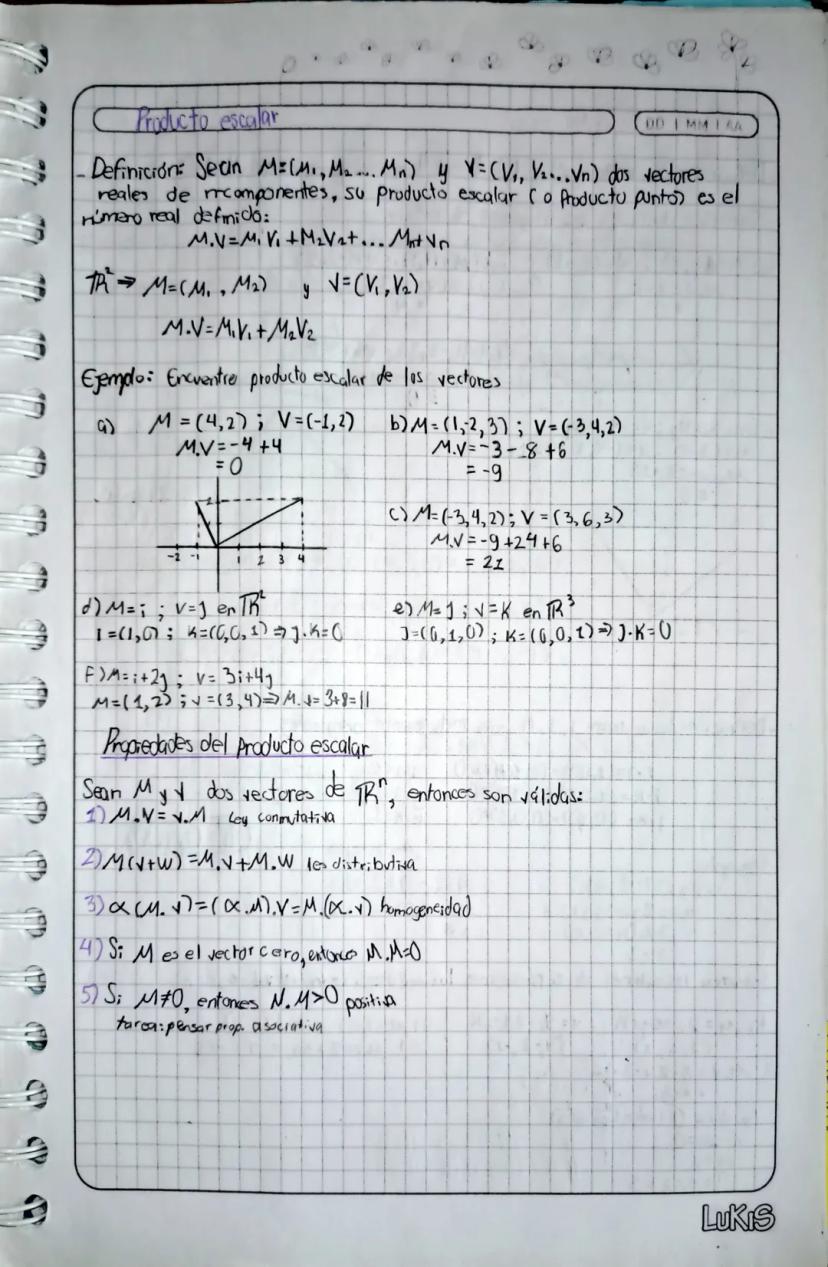 Producto escalar
DD | MM | AA
- Definición: Sean M=(M₁, M₂... Mn) y V=(V₁, V₂...Vn) dos vectores
reales de n componentes, su producto escalar (o Producto punto) es el
número real definido:
M.V=M₁V₁+M₂V₂+... Mn+Vn
ℝ² ⇒ M=(M₁, M₂) y V=(V₁,V₂)
M.V=M₁V₁+M₂V₂
Ejemplo: Encuentre producto escalar de los vectores
a) M=(4,2); V=(-1,2)
M.V=-4+4
=0
2
-2 -1 1 2 3 4
b) M=(1,-2,3); V=(-3,4,2)
M.V=-3-8+6
=-9
c) M=(-3,4,2); V=(3,6,3)
M.V=-9+24+6
=21
d) M=i; V=J en ℝ²
I=(1,0); K=(0,0,1)⇒J.K=0
e) M=J; V=K en ℝ³
J=(0,1,0); K=(0,0,1)⇒J.K=0
F) M=i+2j; V=3i+4j
M=(1,2); V=(3,4)⇒M.V=3+8=11
Propiedades del Producto escalar
Sean M y V dos vectores de ℝⁿ, entonces son válidas:
1) M.V=V.M Ley conmutativa
2) M(V+W)=M.V+M.W ley distributiva
3) α(M.V)=(α.M).V=M.(α.V) homogeneidad
4) Si M es el vector cero, entonces M.M=0
5) Si M≠0, entonces M.M>0 positiva
tarea: pensar prop. asociativa
LUKIS